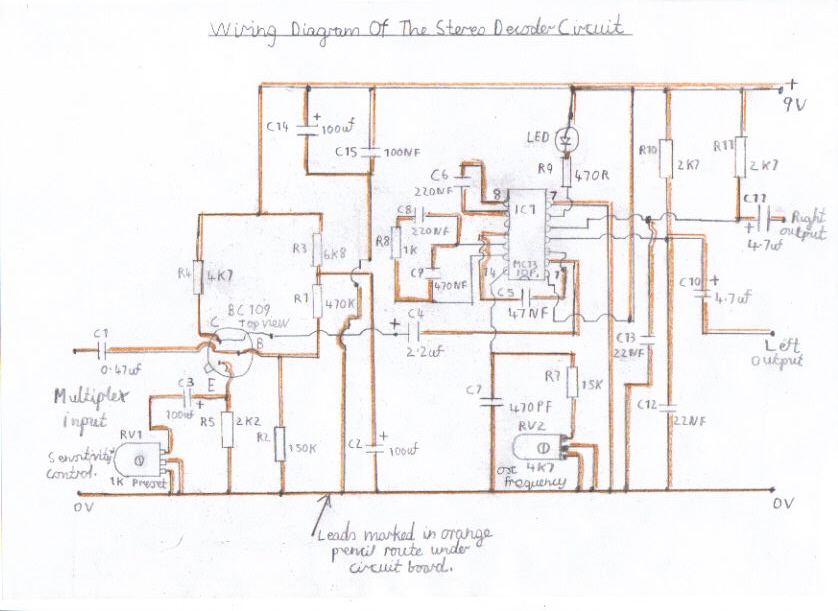 Wiring Diagram Of The Stereo Decoder Circuit
+
9V
C14
+
100uf
C15
100NF
LED
R9
470R
R10
2K7
R11
2K7
C6
220NF
8
7
IC1
C11
+
4.7uf
Right
output
C8
220NF
R8
1K
C9
470NF
14
1
C5
47NF
R4
4K7
R3
6K8
R1
470K
BC109
Top view
C
B
E
C4
+
2.2uf
C10
+
4.7uf
Left
output
C1
0.47uf
Multiplex
input
C3
100uf
+
R5
2K2
R2
150K
C2
+
100uf
C7
470PF
R7
15K
C13
22NF
C12
22NF
RV1
Sensitivity
Control.
1K Preset
RV2
4K7
Osc
Frequency
0V
0V
Leads marked in orange
pencil route under
circuit board.